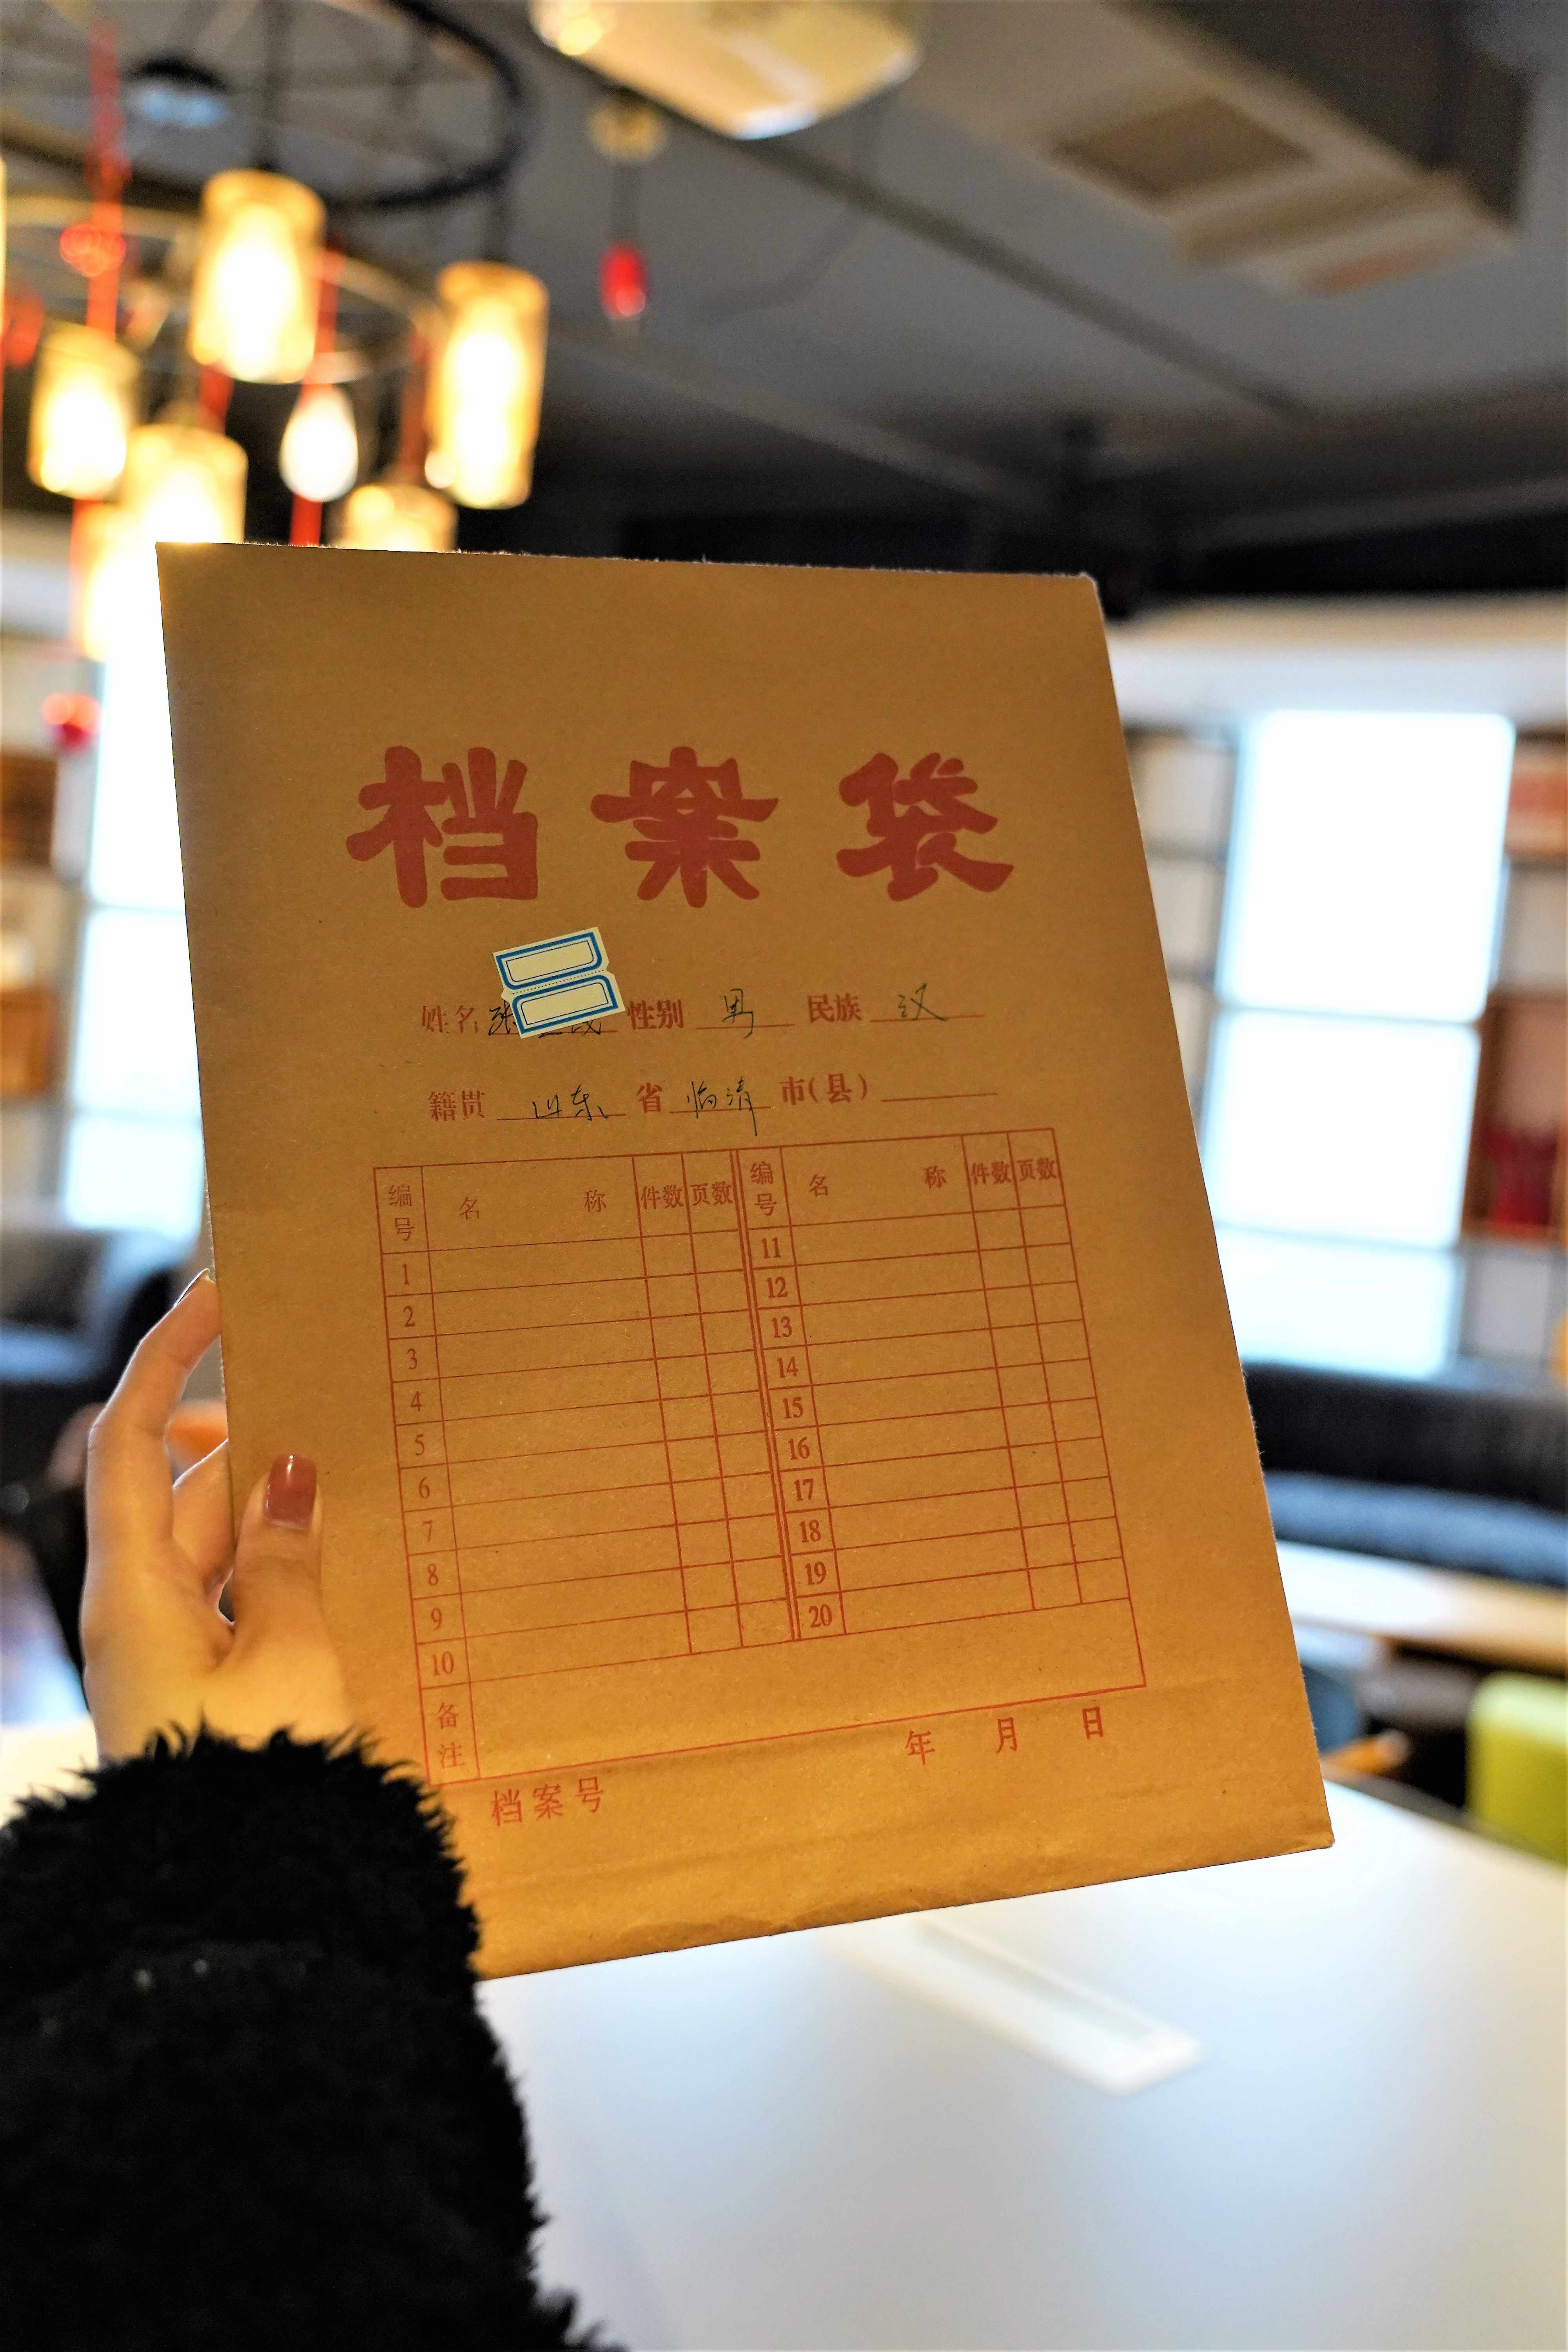 档案袋
姓名 张 性别 男 民族 汉
籍贯 山东 省 临清 市(县)
编号 名称 件数 页数 编号 名称 件数 页数
1 11
2 12
3 13
4 14
5 15
6 16
7 17
8 18
9 19
10 20
备注
年 月 日
档案号